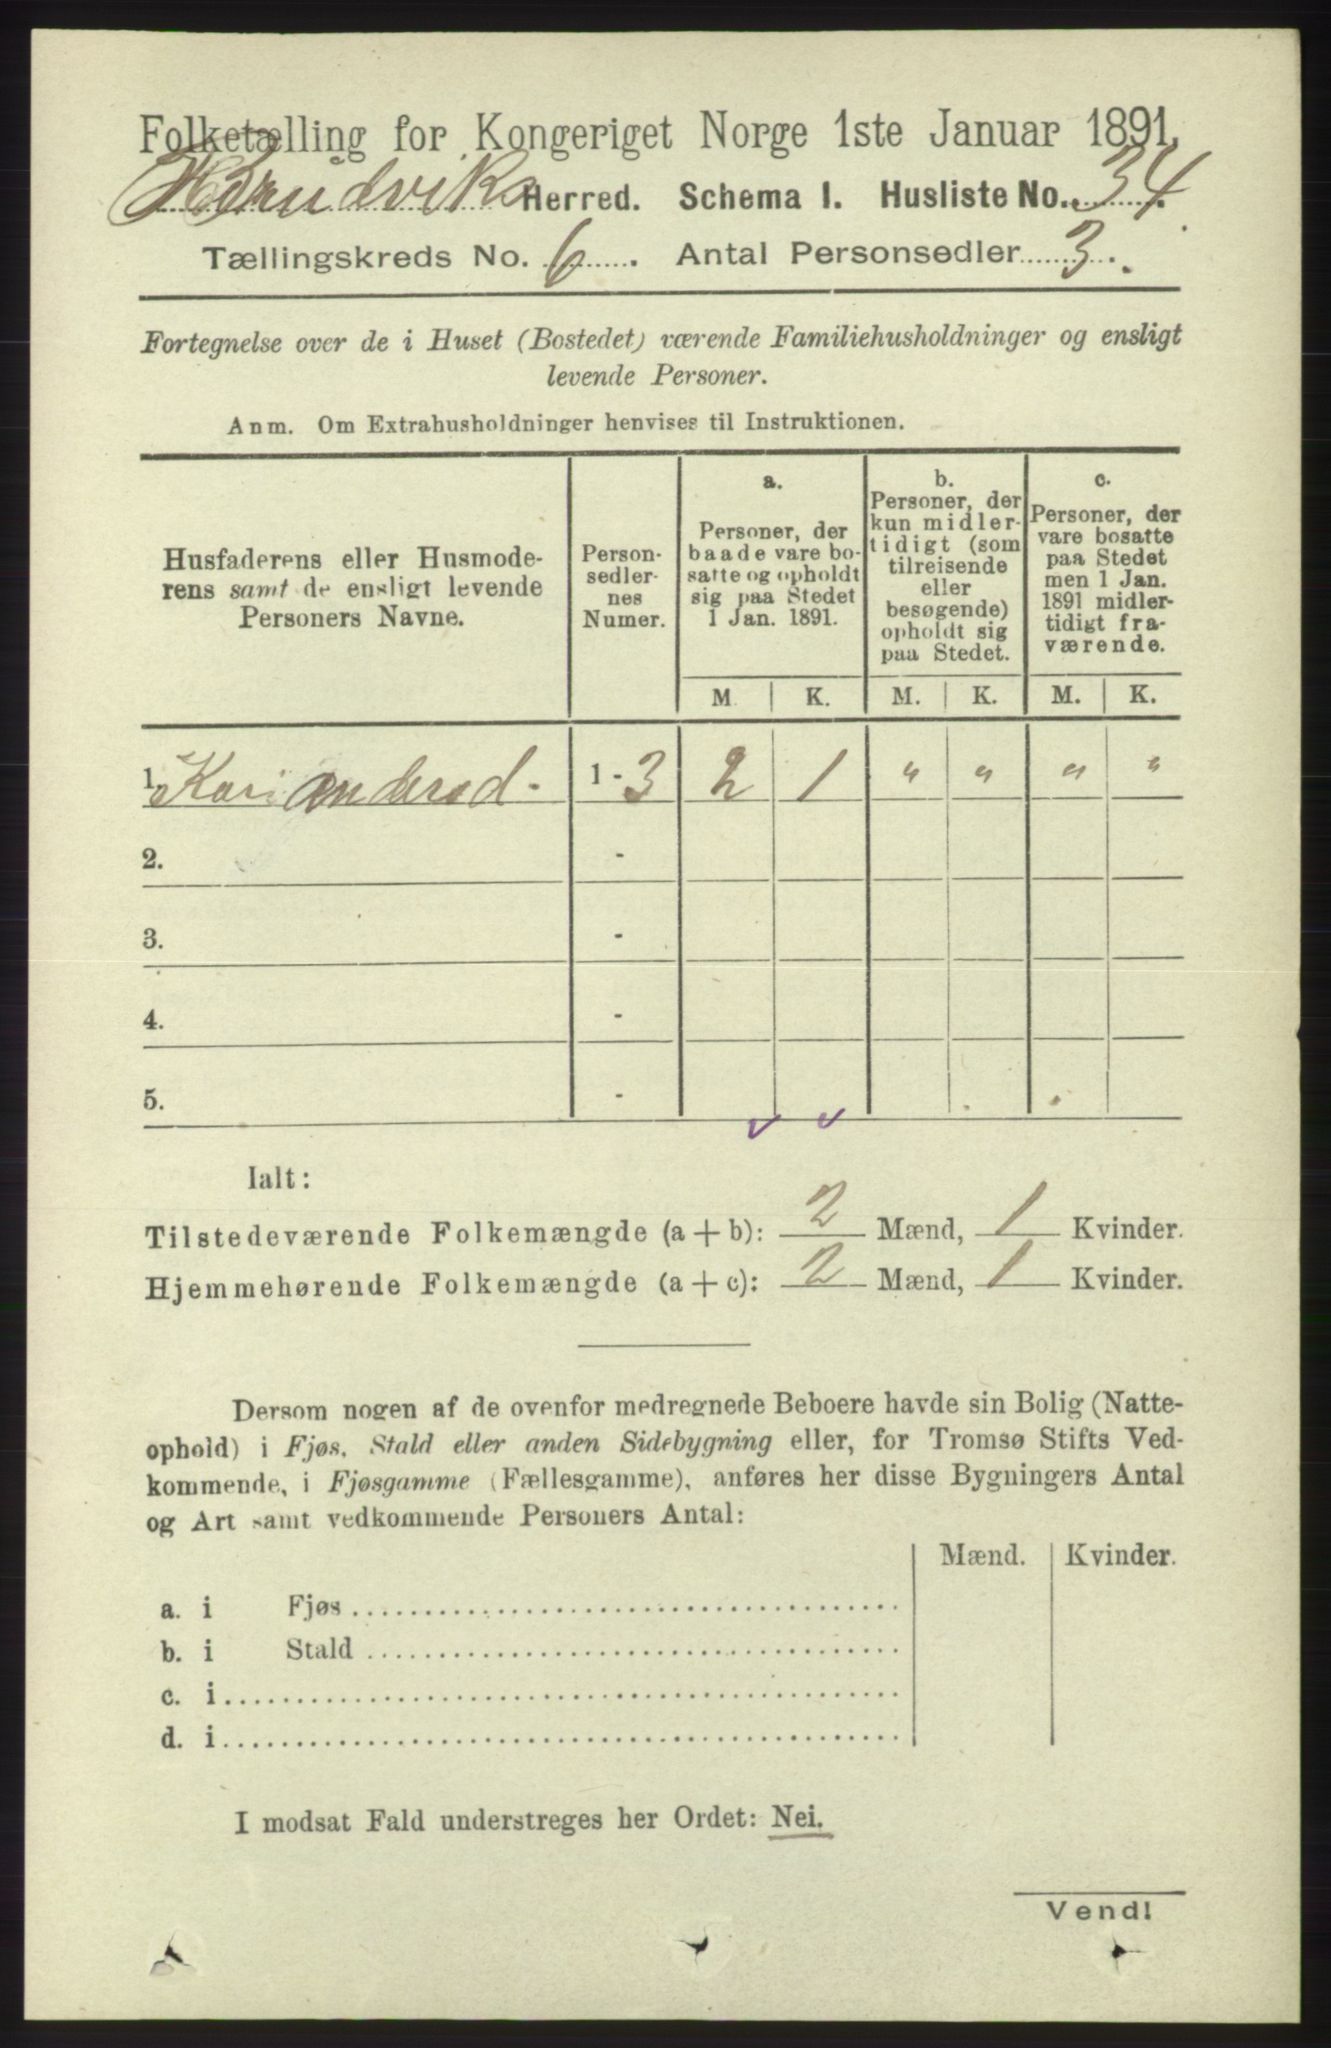 Folketælling for Kongeriget Norge 1ste Januar 1891.
Brudvik Herred. Schema I. Husliste No. 34.
Tællingskreds No. 6. Antal Personsedler 3.
Fortegnelse over de i Huset (Bostedet) værende Familiehusholdninger og ensligt
levende Personer.
Anm. Om Extrahusholdninger henvises til Instruktionen.
Husfaderens eller Husmode-
rens samt de ensligt levende
Personers Navne.
Person-
sedler-
nes
Numer.
a.
Personer, der
baade vare bo-
satte og opholdt
sig paa Stedet
1 Jan. 1891.
b.
Personer, der
kun midler-
tidigt (som
tilreisende
eller
besøgende)
opholdt sig
paa Stedet.
c.
Personer, der
vare bosatte
paa Stedet
men 1 Jan.
1891 midler-
tidigt fra-
værende.
M. K. M. K. M. K.
1. Kari Andersd. 1 - 3 2 1 " " " "
2. -
3. -
4. -
5. -
Ialt:
Tilstedeværende Folkemængde (a + b): 2 Mænd, 1 Kvinder.
Hjemmehørende Folkemængde (a + c): 2 Mænd, 1 Kvinder.
Dersom nogen af de ovenfor medregnede Beboere havde sin Bolig (Natte-
ophold) i Fjøs, Stald eller anden Sidebygning eller, for Tromsø Stifts Ved-
kommende, i Fjøsgamme (Fællesgamme), anføres her disse Bygningers Antal
og Art samt vedkommende Personers Antal:
Mænd. Kvinder.
a. i Fjøs
b. i Stald
c. i
d. i
I modsat Fald understreges her Ordet: Nei.
Vend!